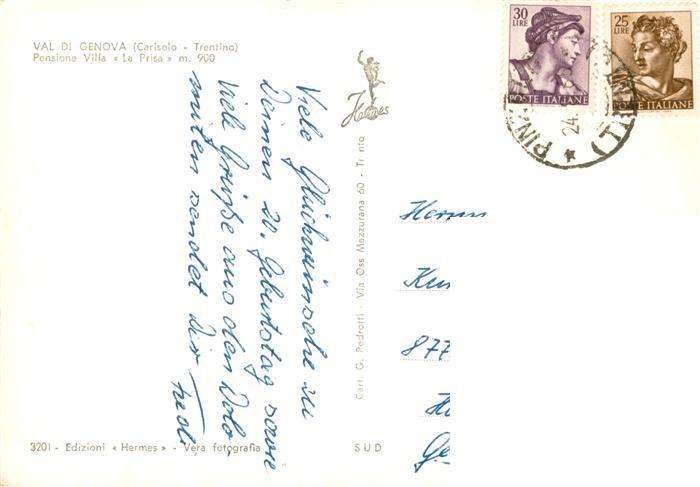 VAL DI GENOVA (Carisolo - Trentino)
Pensione Villa « La Prisa » m. 900
Hermes
Viele Glückwünsche zu
Deinem 20. Geburtstag sowie
Viele Grüße aus den Dolo-
miten sendet Dir
Cart. G. Pedrotti - Via Oss Mazzurana 60 - Trento
30 LIRE
POSTE ITALIANE
25 LIRE
POSTE ITALIANE
PINZ
24.
Herrn
877
3201 - Edizioni « Hermes » - Vera fotografia
SUD